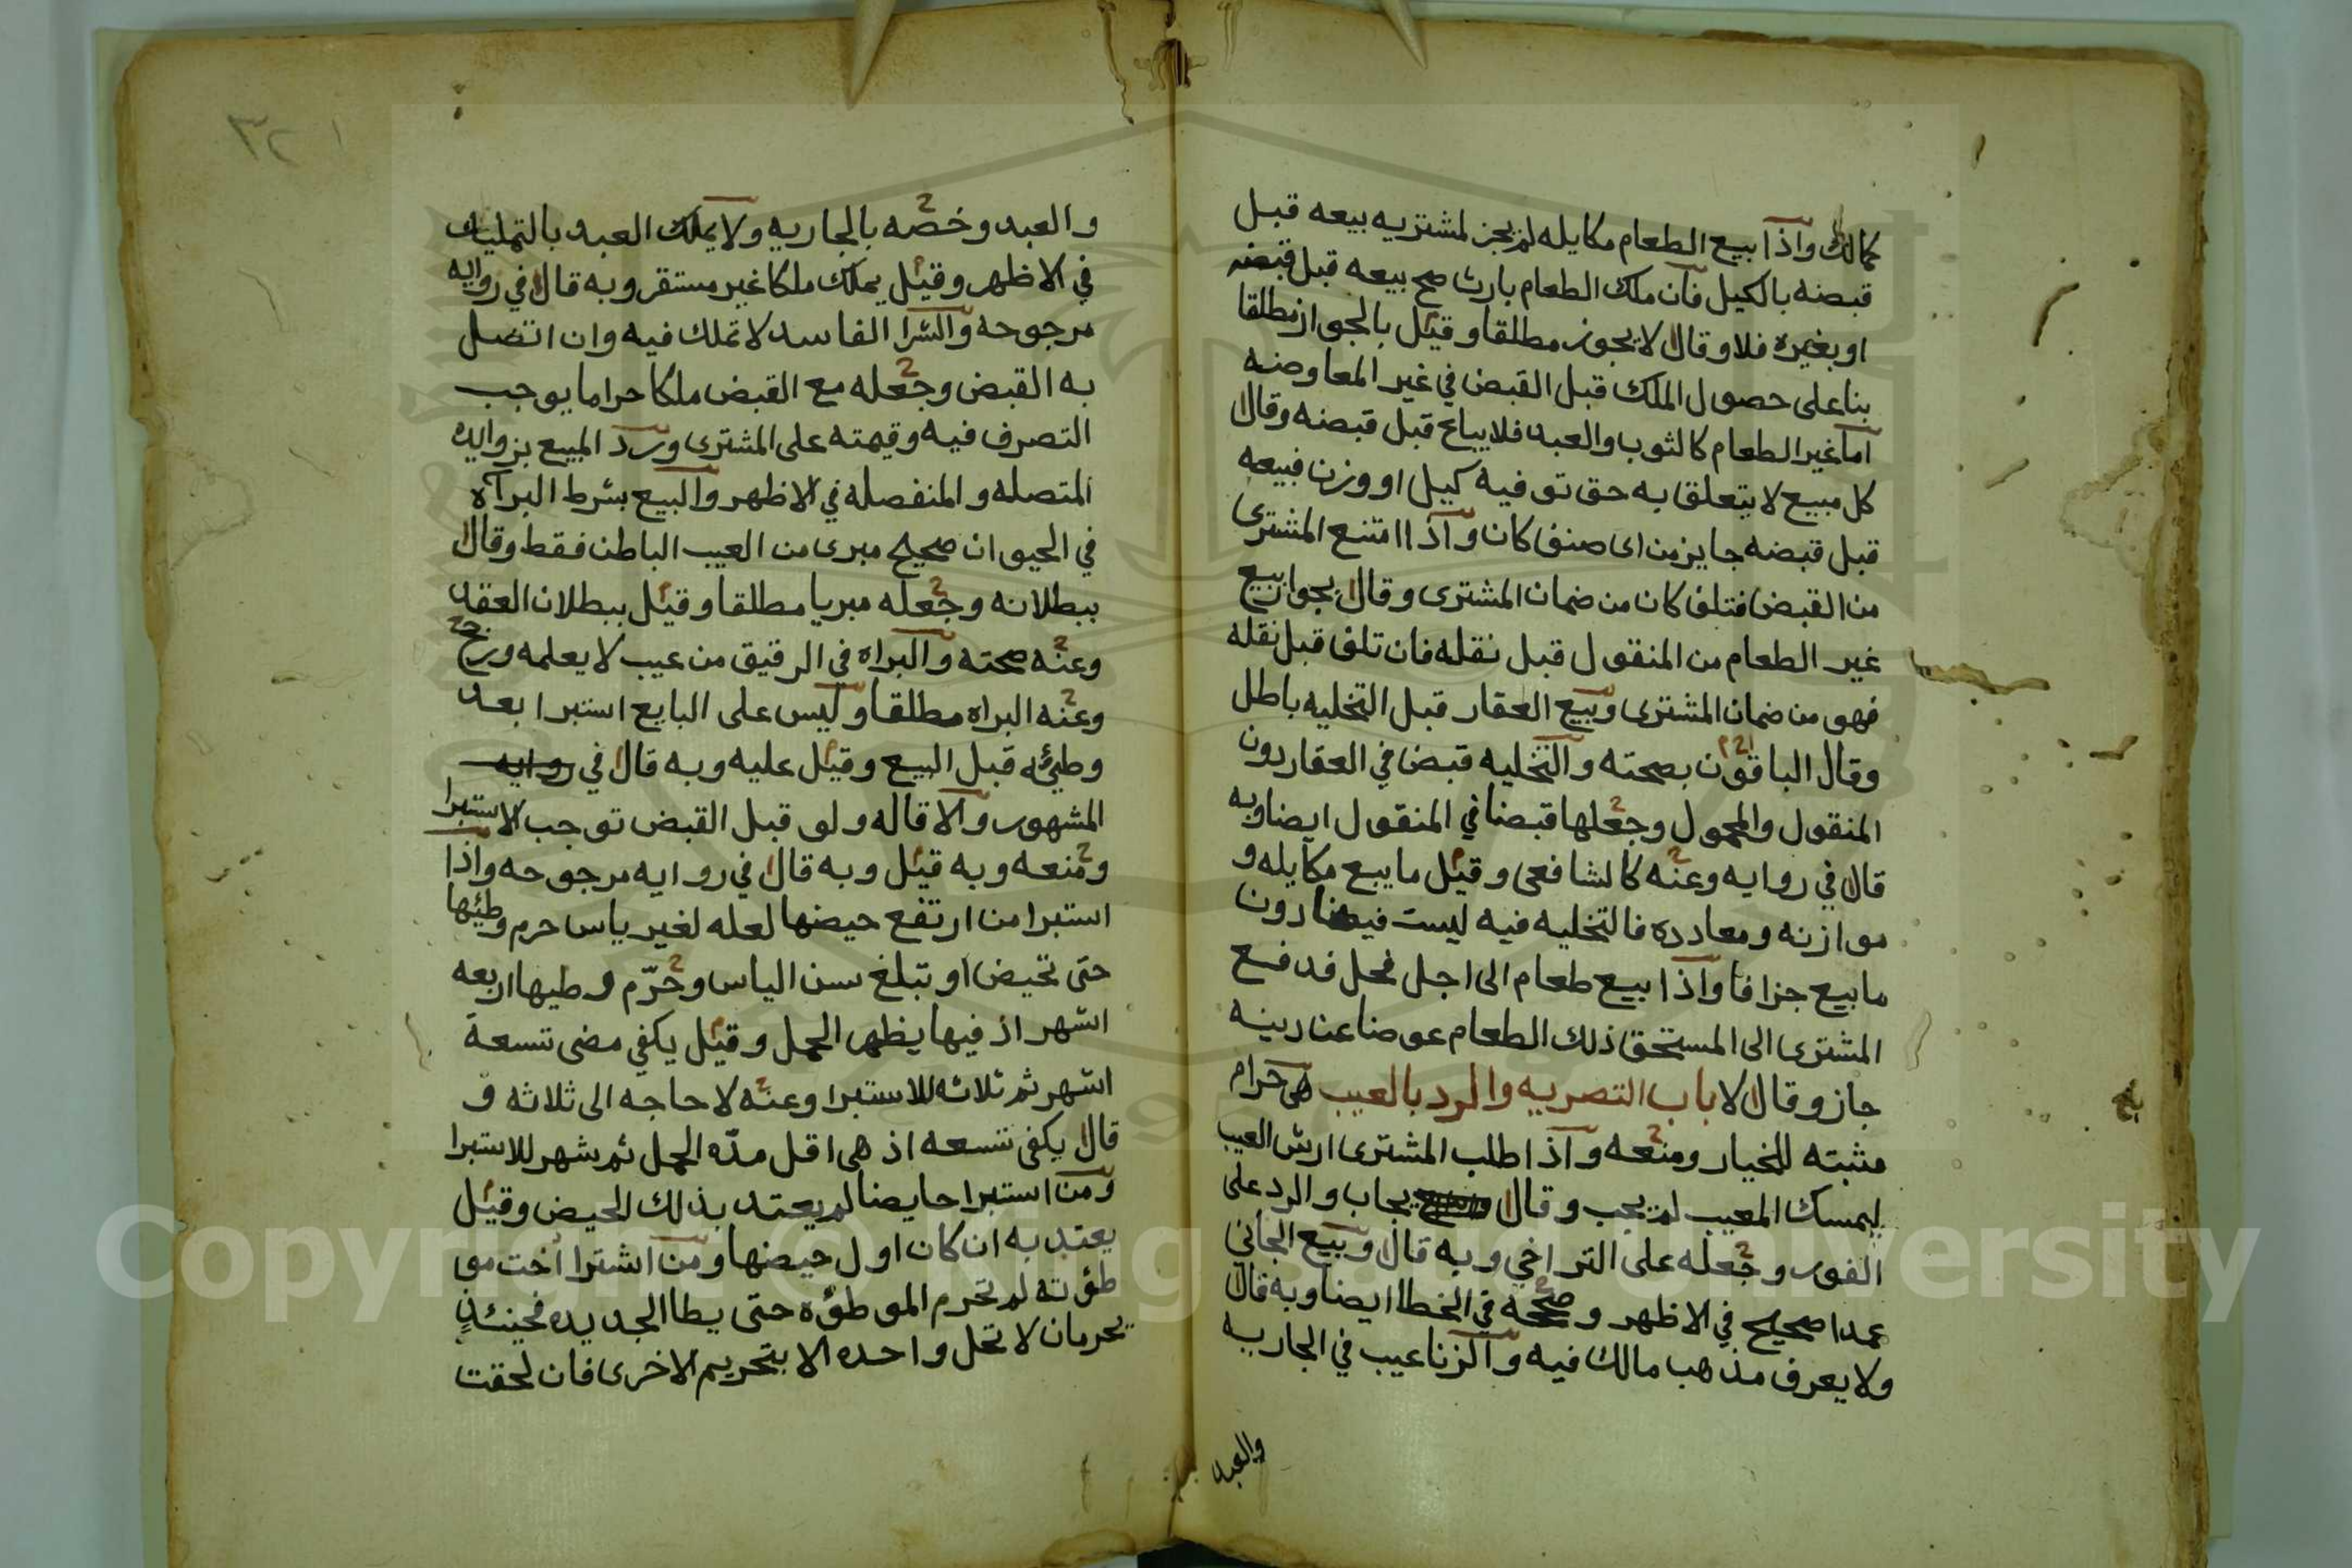 كمالك واذا بيع الطعام مكايله لم يجز لمشتريه بيعه قبل
قبضه بالكيل فان ملك الطعام بارث صح بيعه قبل قبضه
او بغيره فلا وقال لا يجوز مطلقا وقيل بالجواز مطلقا
بنا على حصول الملك قبل القبض في غير المعاوضه
اما غير الطعام كالثوب والعبد فلا يباع قبل قبضه وقال
كل مبيع لا يتعلق به حق توفيه كيل او وزن فبيعه
قبل قبضه جايز من اى صنف كان واذا امتنع المشترى
من القبض فتلف كان من ضمان المشترى وقال بجواز بيع
غير الطعام من المنقول قبل نقله فان تلف قبل نقله
فهو من ضمان المشترى وبيع العقار قبل التخليه باطل
وقال الباقون بصحته والتخليه قبض في العقار دون
المنقول والمحمول وجعلها قبضا في المنقول ايضا وبه
قال في روايه وعنه كالشافعى وقيل ما يبيع مكايله و
موازنه ومعادده فالتخليه فيه ليست قبضا دون
ما بيع جزافا واذا بيع طعام الى اجل فحل فدفع
المشترى الى المستحق ذلك الطعام عوضا عن دينه
جاز وقال لا باب التصريه والرد بالعيب هى حرام
مثبته للخيار ومنعه واذا طلب المشترى ارش العيب
ليمسك المعيب لم يجب وقال يجاب والرد على
الفور وجعله على التراخي وبه قال وبيع الجاني
عمدا صحيح في الاظهر وصححه في الخطا ايضا وبه قال
ولا يعرف مذهب مالك فيه والزنا عيب في الجاريه
والعبد
٣٢١
والعبد وخصه بالجاريه ولا يملك العبد بالتمليك
في الاظهر وقيل يملك ملكا غير مستقر وبه قال في روايه
مرجوحه والشرا الفاسد لا تملك فيه وان اتصل
به القبض وجعله مع القبض ملكا حراما يوجب
التصرف فيه وقيمته على المشترى ورد المبيع بزوايده
المتصله والمنفصله في الاظهر والبيع بشرط البرآة
في الحيوان صحيح مبرى من العيب الباطن فقط وقال
ببطلانه وجعله مبريا مطلقا وقيل ببطلان العقد
وعنه صحته والبراه في الرقيق من عيب لا يعلمه ورجح
وعنه البراه مطلقا وليس على البايع استبرا بعد
وطيئه قبل البيع وقيل عليه وبه قال في روايه
المشهور والاقاله ولو قبل القبض توجب الاستبرا
ومنعه وبه قيل وبه قال في روايه مرجوحه واذا
استبرا من ارتفع حيضها لعله لغير ياس حرم وطيئها
حتى تحيض او تبلغ سن الياس وحرّم وطيها اربعه
اشهر اذ فيها يظهر الحمل وقيل يكفي مضى تسعة
اشهر ثم ثلاثه للاستبرا وعنه لا حاجه الى ثلاثه و
قال يكفى تسعه اذ هى اقل مدّه الحمل ثم شهر للاستبرا
ومن استبرا حايضا لم يعتد بذلك الحيض وقيل
يعتد به ان كان اول حيضها ومن اشترا اخت مو
طؤته لم تحرم الموطؤه حتى يطا الجديده فحينئذٍ
يحرمان لا تحل واحده الا بتحريم الاخرى فان لحقت
Copyright © King Saud University